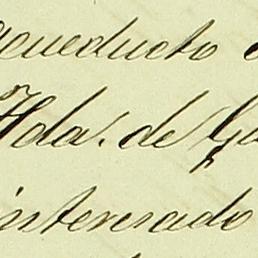 aqueducto
Hda. de
interesado